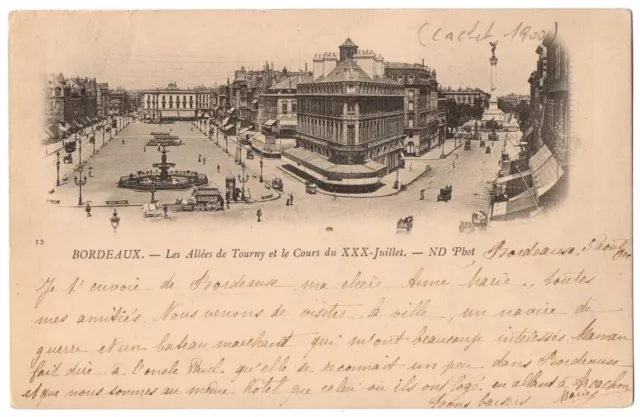 (Cachet 1900)
12
BORDEAUX. — Les Allées de Tourny et le Cours du XXX-Juillet. — ND Phot
Bordeaux, 3 août
Je t'envoie de Bordeaux, ma chère Anne Marie, toutes
mes amitiés. Nous venons de visiter la ville, un navire de
guerre et un bateau marchand qui m'ont beaucoup intéressés. Maman
fait dire à l'oncle Paul qu'elle se reconnait un peu dans Bordeaux
et que nous sommes au même hôtel que celui où ils ont logé en allant à Arcachon
Bons baisers Marie